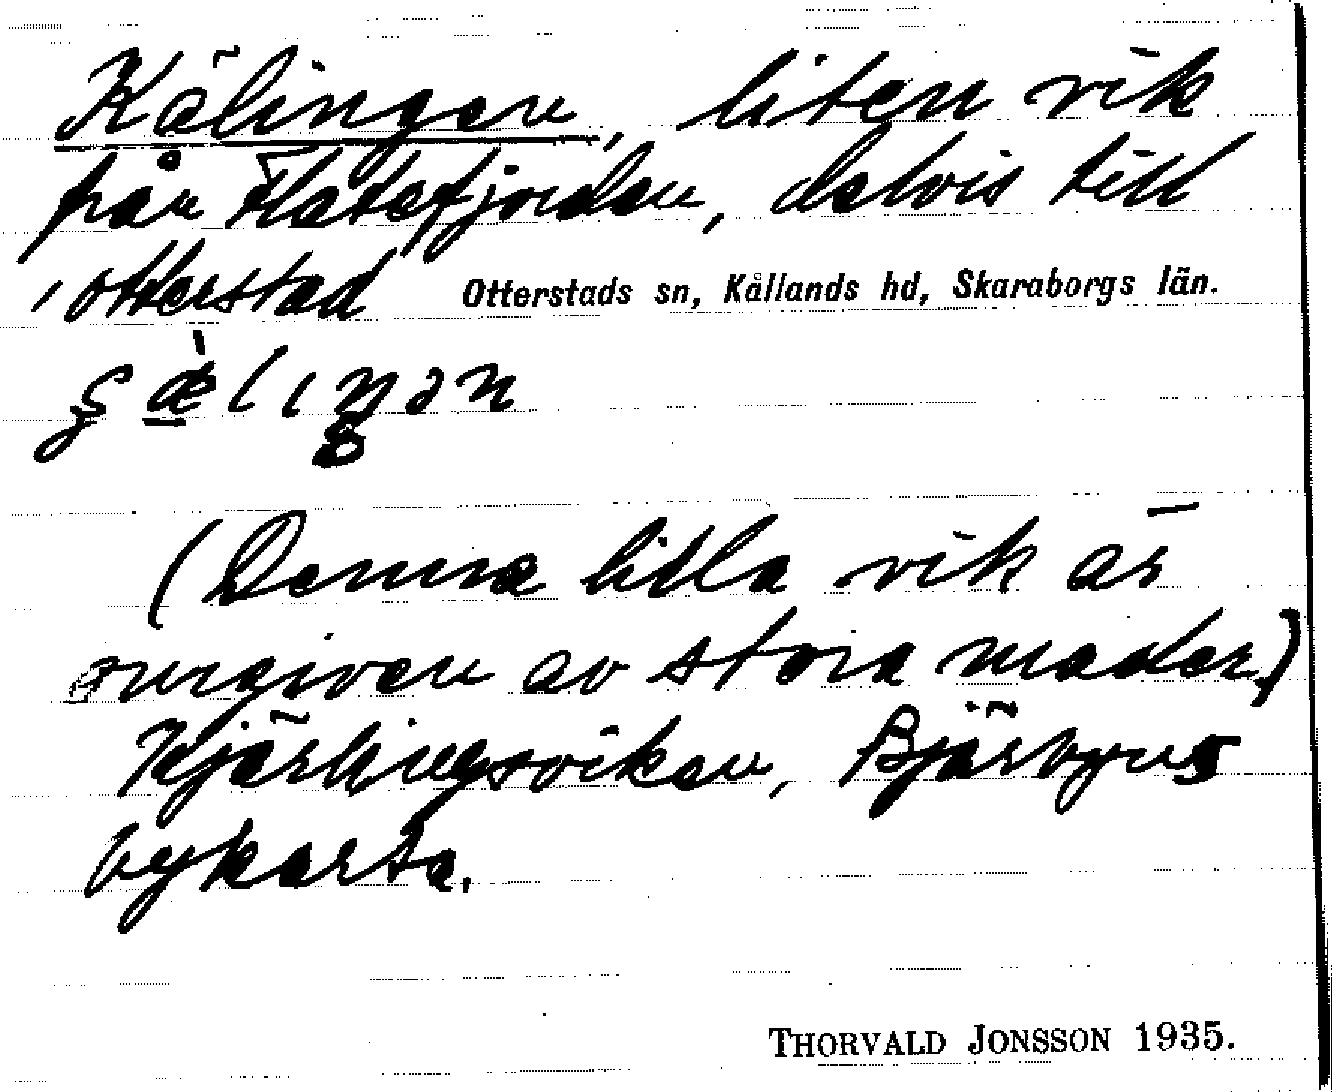 Kälingen, liten vik
från Flatefjorden, delvis till
Otterstad
Otterstads sn, Kållands hd, Skaraborgs län.
(Denna lilla vik är
omgiven av stora mader.)
Kjärlingsviken, Bjärbyns
bykarta.
THORVALD JONSSON 1935.